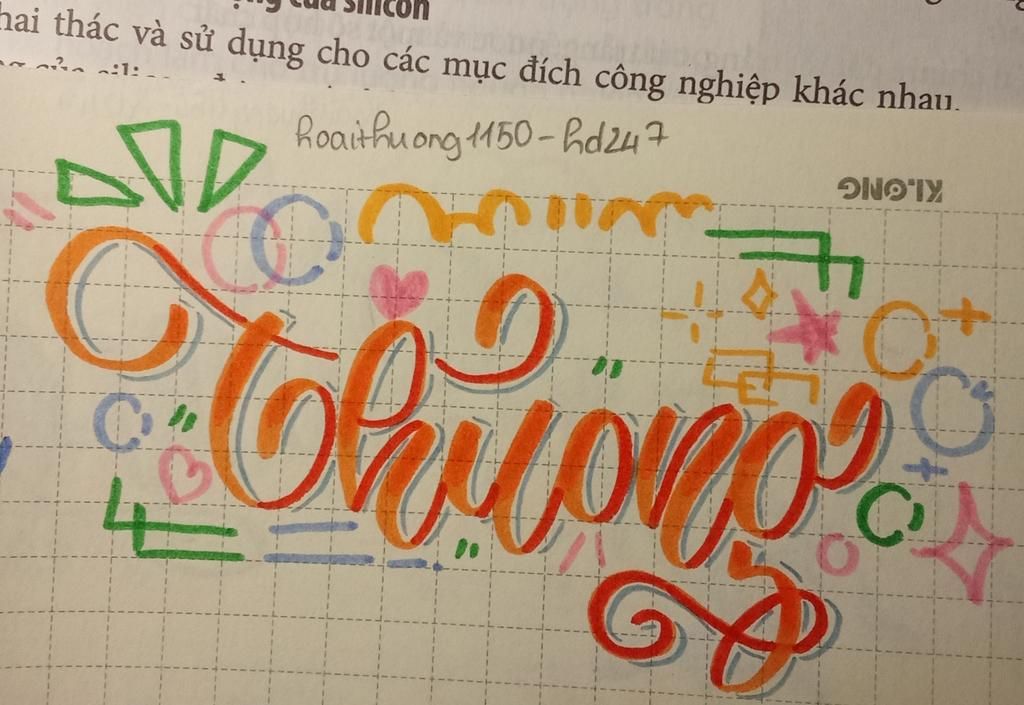 của silicon
hai thác và sử dụng cho các mục đích công nghiệp khác nhau.
hoaithuong1150-hd247
KLONG
Thương